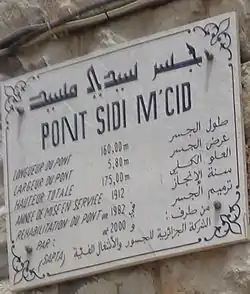 جسر سيدي مسيد
PONT SIDI M'CID
LONGUEUR DU PONT 160,00m طول الجسر
LARGEUR DU PONT 5,80m عرض الجسر
HAUTEUR TOTALE 175,00m العلو الكلي
ANNEE DE MISE EN SERVICE 1912 سنة الإنجاز
REHABILITATION DU PONT en 1982 في ترميم الجسر
et 2000 و
PAR : من طرف :
(SAPTA) الشركة الجزائرية للجسور والأشغال الفنية